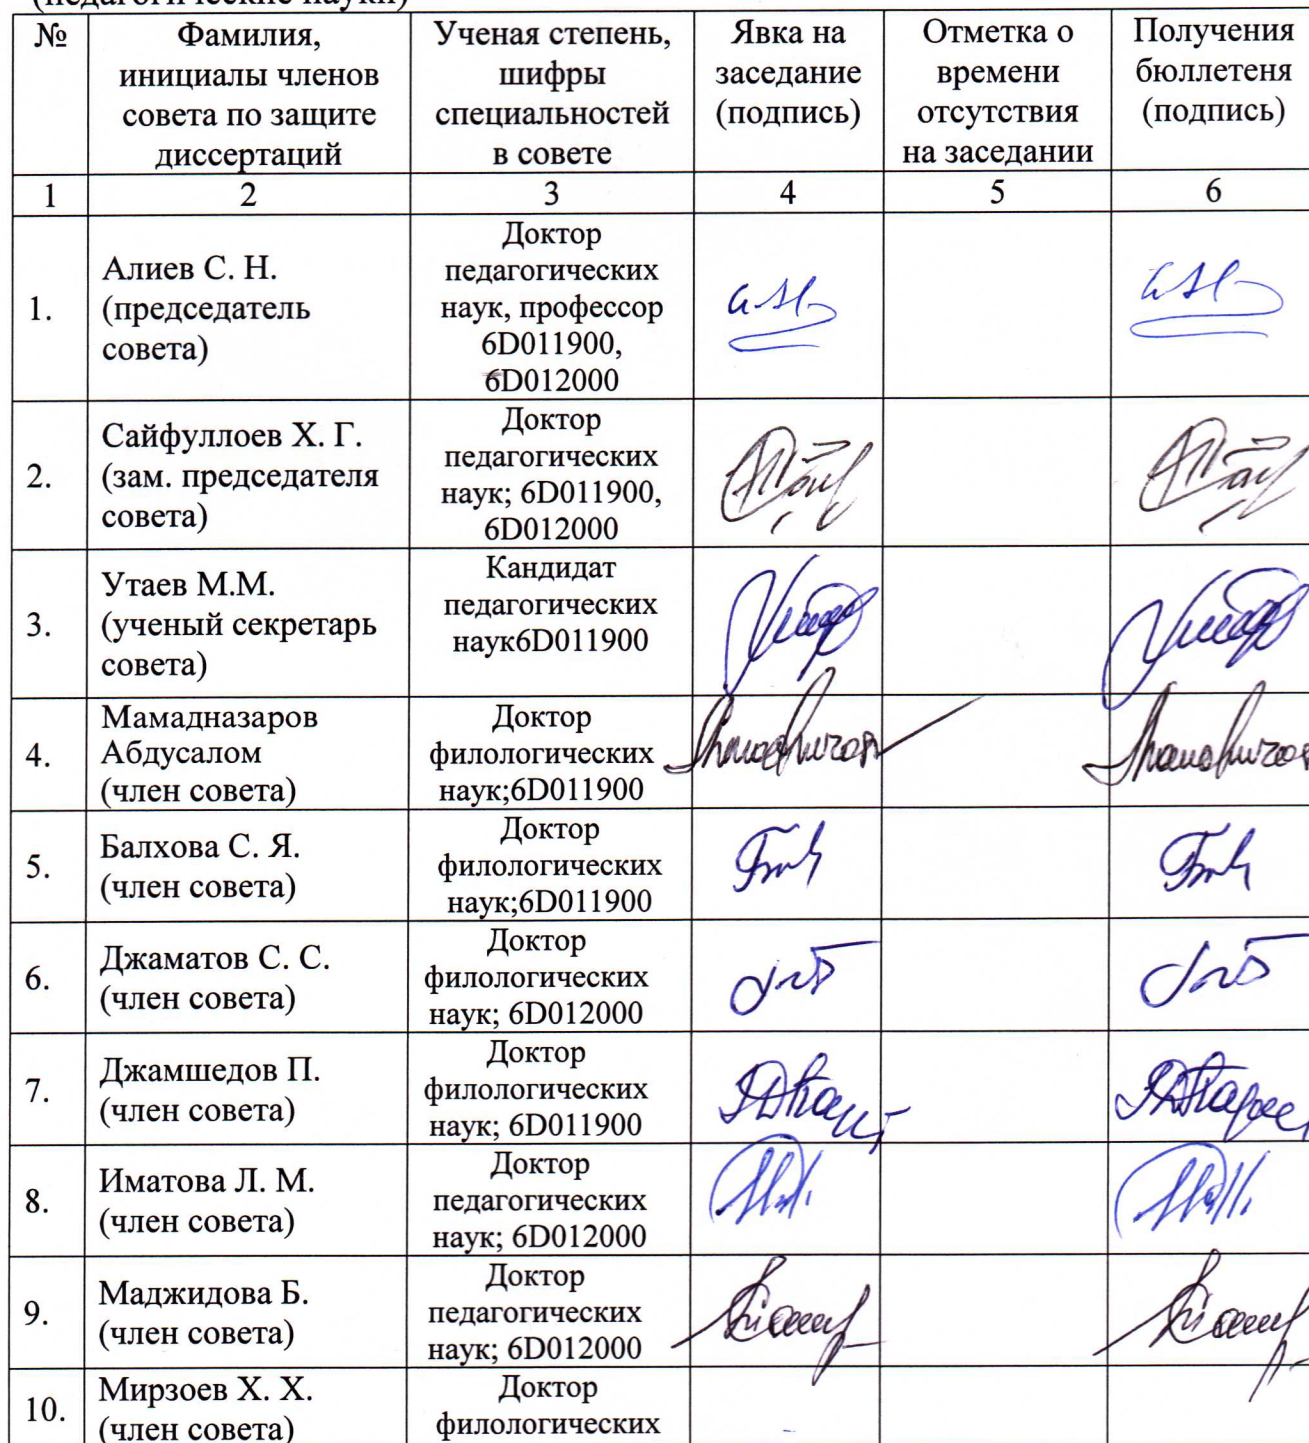 (педагогические науки)
№
Фамилия,
инициалы членов
совета по защите
диссертаций
Ученая степень,
шифры
специальностей
в совете
Явка на
заседание
(подпись)
Отметка о
времени
отсутствия
на заседании
Получения
бюллетеня
(подпись)
1 2 3 4 5 6
1.
Алиев С. Н.
(председатель
совета)
Доктор
педагогических
наук, профессор
6D011900,
6D012000
2.
Сайфуллоев Х. Г.
(зам. председателя
совета)
Доктор
педагогических
наук; 6D011900,
6D012000
3.
Утаев М.М.
(ученый секретарь
совета)
Кандидат
педагогических
наук6D011900
4.
Мамадназаров
Абдусалом
(член совета)
Доктор
филологических
наук;6D011900
5.
Балхова С. Я.
(член совета)
Доктор
филологических
наук;6D011900
6.
Джаматов С. С.
(член совета)
Доктор
филологических
наук; 6D012000
7.
Джамшедов П.
(член совета)
Доктор
филологических
наук; 6D011900
8.
Иматова Л. М.
(член совета)
Доктор
педагогических
наук; 6D012000
9.
Маджидова Б.
(член совета)
Доктор
педагогических
наук; 6D012000
10.
Мирзоев Х. Х.
(член совета)
Доктор
филологических